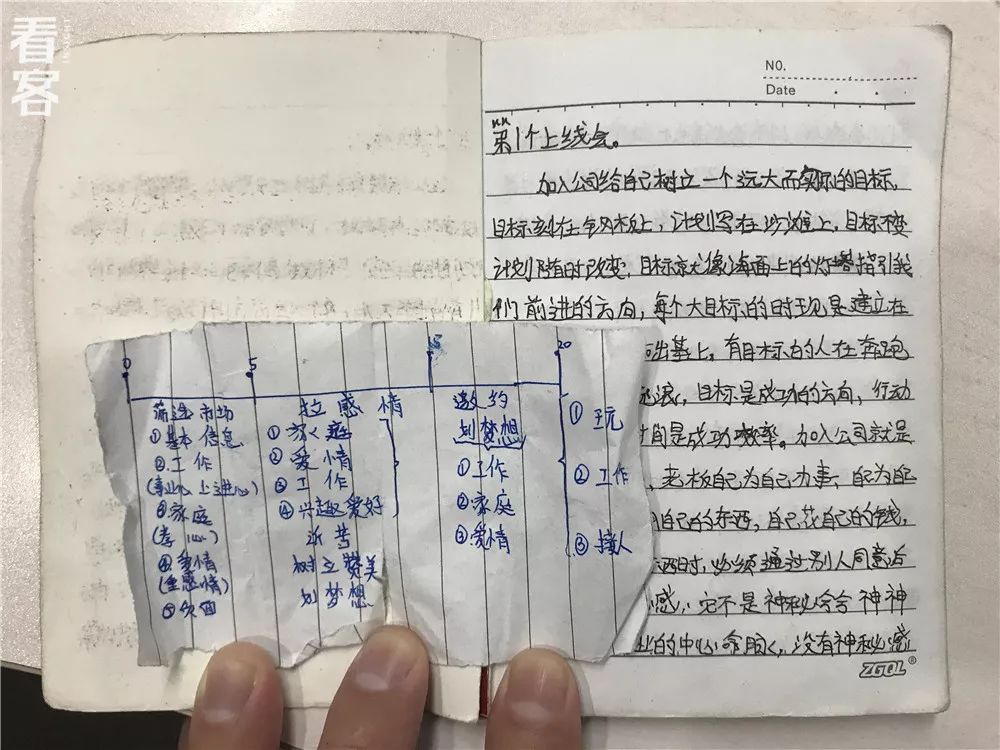 看客
NO.
Date
第1个上线会。
加入公司给自己树立一个远大而实际的目标,
目标刻在钢板上,计划写在沙滩上,目标不变
计划随时改变,目标就像海面上的灯塔指引我
们前进的方向,每个大目标的时现是建立在
础基上,有目标的人在奔跑
流浪,目标是成功的方向,行动
时间是成功效率。加入公司就是
,老板自己为自己办事,自为自己
自己的东西,自己花自己的钱,
西时,必须通过别人同意后
感,它不是神秘会会神神
业的中心命脉,没有神秘感
ZGQL®
0 5 15 20
筛选市场
①基本信息
②工作
(事业心上进心)
③家庭
(孝心)
④爱情
(重感情)
⑤
拉感情
①家庭
②爱情
③工作
④兴趣爱好
诉苦
树立赞美
划梦想
邀约
划梦想
①工作
②家庭
③爱情
①玩
②工作
③接人